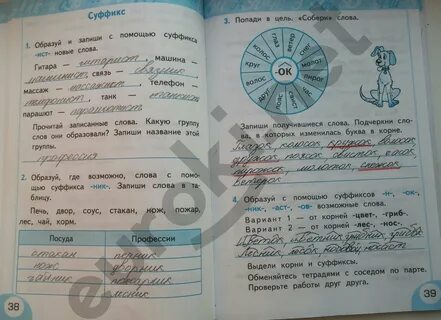 Суффикс
1. Образуй и запиши с помощью суффикса
-ист- новые слова.
Гитара — гитарист, машина —
машинист, связь — связист,
массаж — массажист, телефон —
телефонист, танк — танкист,
парашют — парашютист.
Прочитай записанные слова. Какую группу
слов они образовали? Запиши название этой
группы.
профессия
2. Образуй, где возможно, слова с помо-
щью суффикса -ник-. Запиши слова в та-
блицу.
Печь, двор, соус, стакан, нож, пожар,
лес, чай, корм.
Посуда Профессии
стакан печник
нож дворник
чайник пожарник
лесник
38
3. Попади в цель. «Собери» слова.
глаз
ветер
снег
мороз
пирог
час
свист
пояс
друг
волос
круг
колос
ОК
Запиши получившиеся слова. Подчеркни сло-
ва, в которых изменилась буква в корне.
Глазок, колосок, кружок, волосок
дружок, поясок, свисток, часок
пирожок, снежок
ветерок
4. Образуй с помощью суффиксов -н-, -ок-,
-ник-, -аст-, -ов- возможные слова.
Вариант 1 — от корней -цвет-, -гриб-.
Вариант 2 — от корней -лес-, -нос-.
Цветок, цветник, грибник, грибок
Лесник, носок, носовой
Выдели корни и суффиксы.
Обменяйтесь тетрадями с соседом по парте.
Проверьте работы друг друга.
39